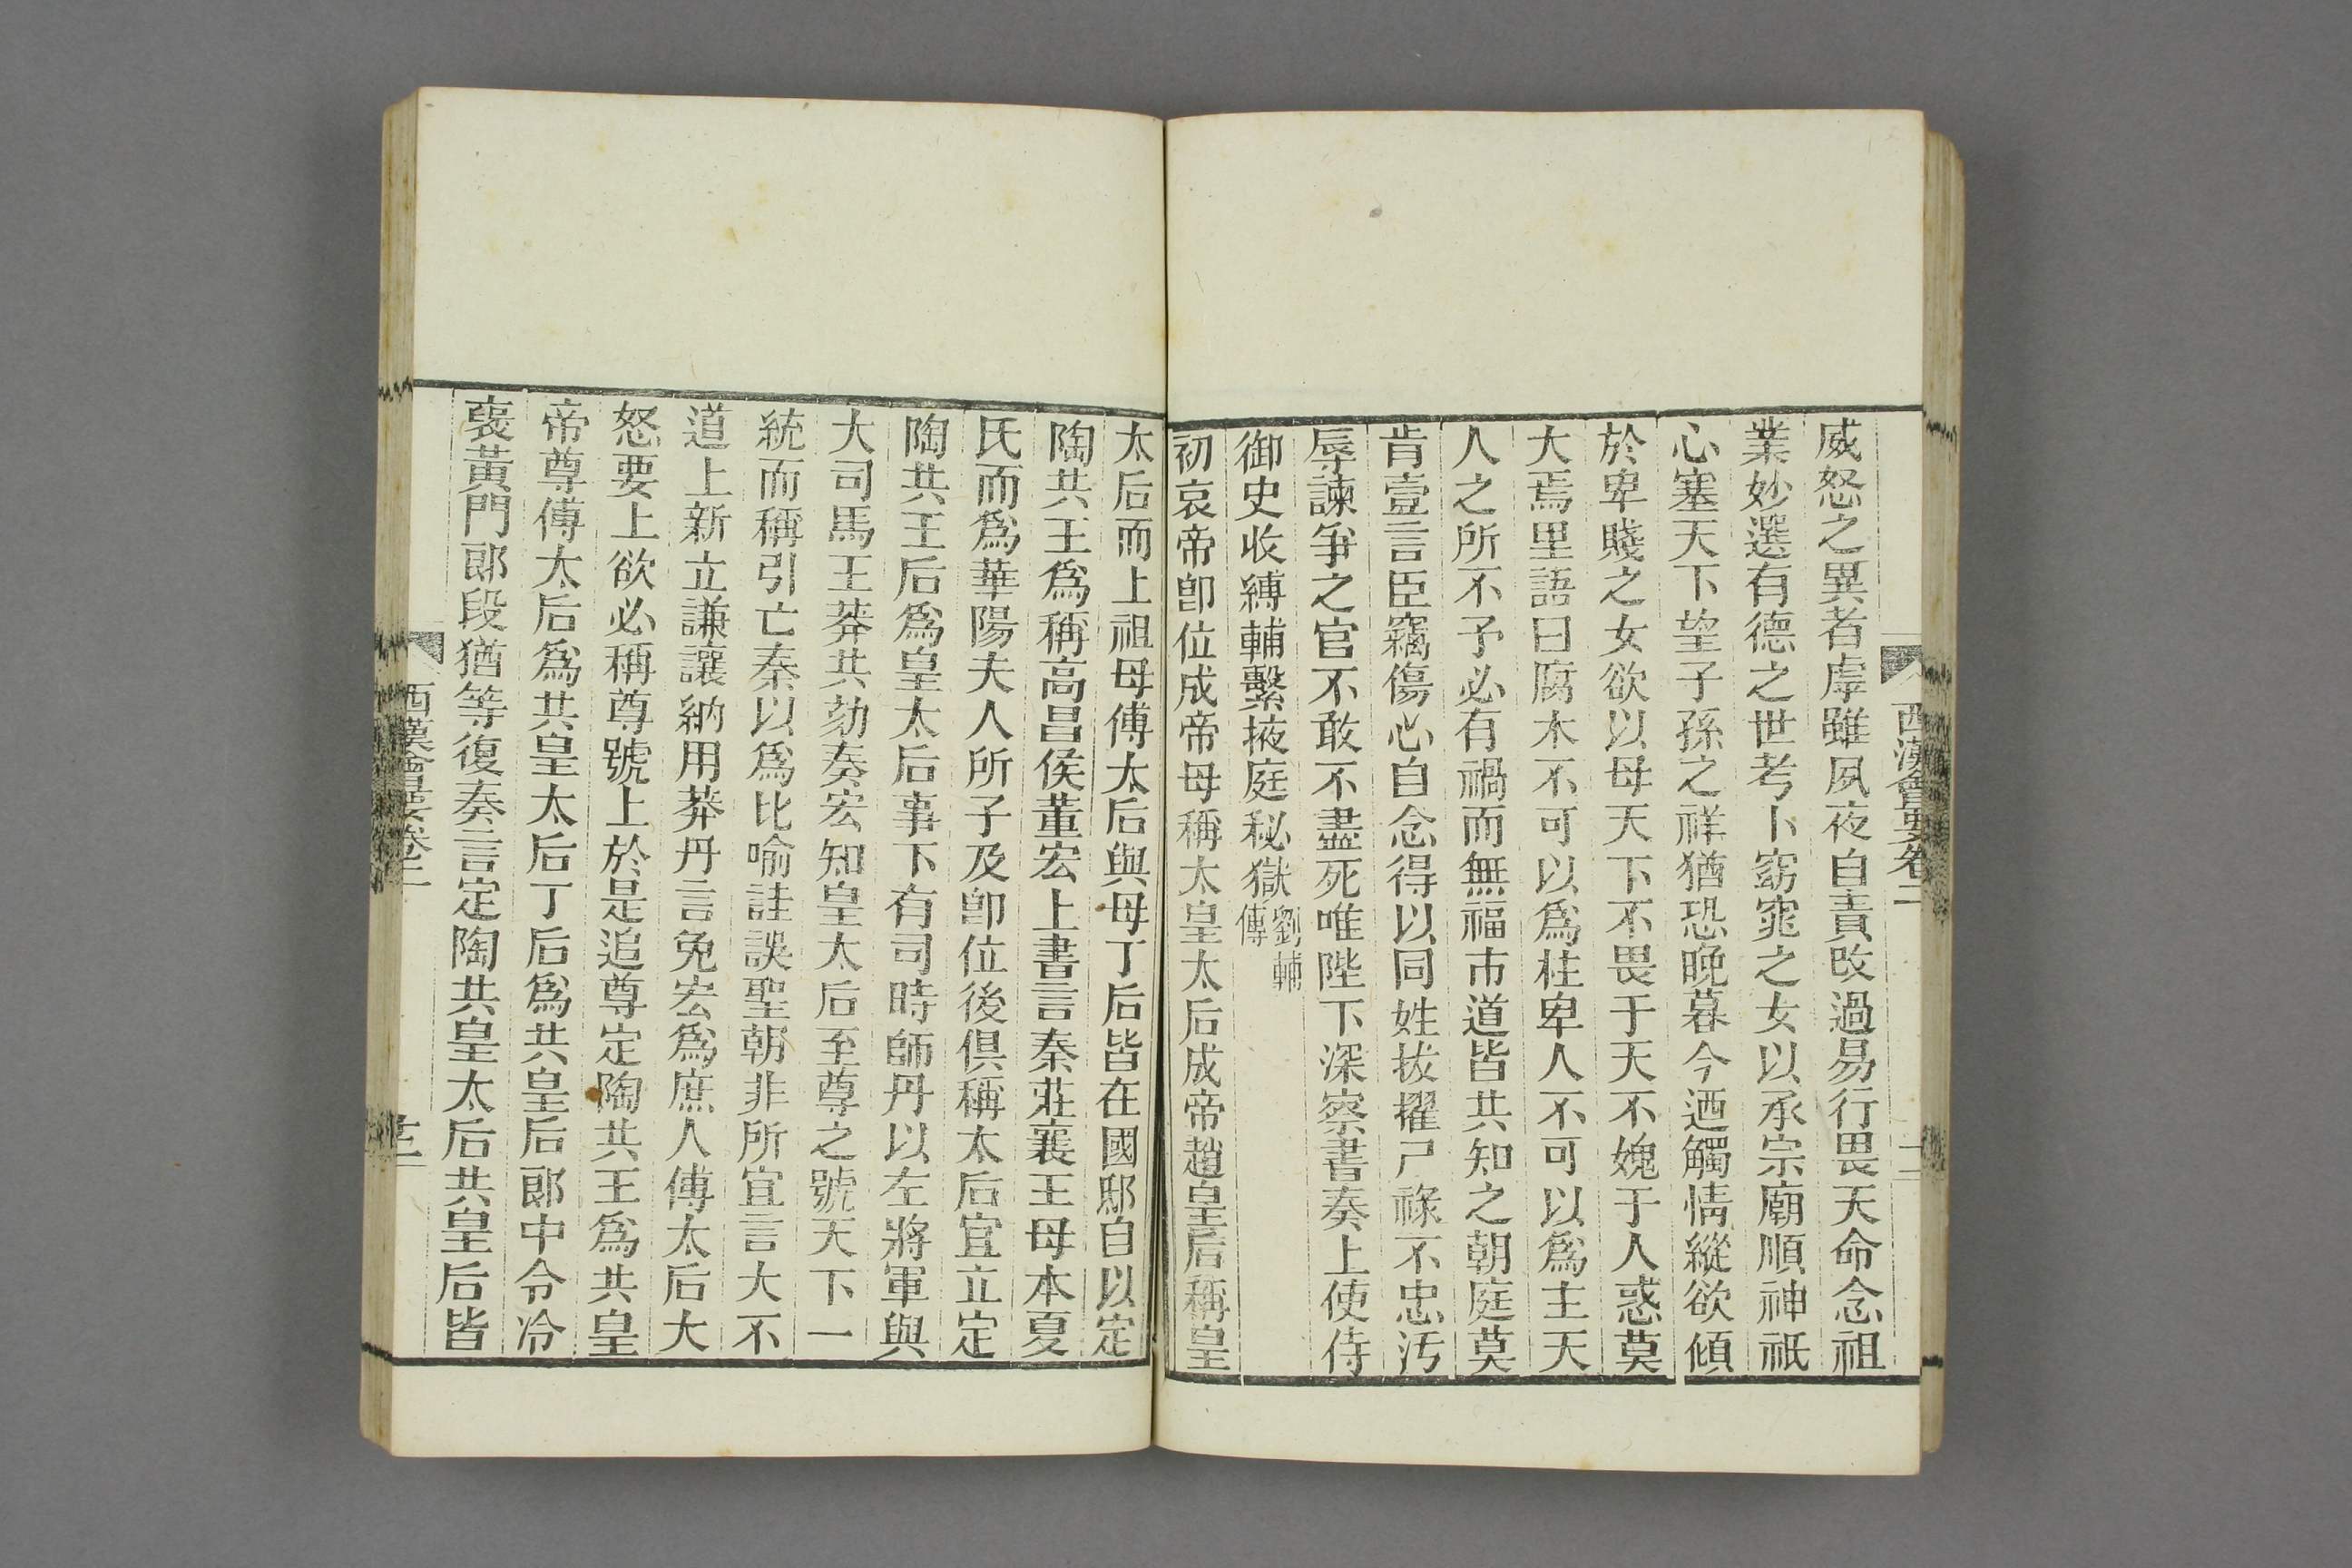 西漢會要卷二
威怒之異者虖雖夙夜自責改過易行畏天命念祖
業妙選有德之世考卜窈窕之女以承宗廟順神祇
心塞天下望子孫之祥猶恐晚暮今迺觸情縱欲傾
於卑賤之女欲以母天下不畏于天不媿于人惑莫
大焉里語曰腐木不可以爲柱卑人不可以爲主天
人之所不予必有禍而無福市道皆共知之朝庭莫
肯壹言臣竊傷心自念得以同姓拔擢尸祿不忠汚
辱諫爭之官不敢不盡死唯陛下深察書奏上使侍
御史收縛輔繫掖庭秘獄劉輔傳
初哀帝卽位成帝母稱太皇太后成帝趙皇后稱皇
太后而上祖母傅太后與母丁后皆在國邸自以定
陶共王爲稱高昌侯董宏上書言秦莊襄王母本夏
氏而爲華陽夫人所子及卽位後俱稱太后宜立定
陶共王后爲皇太后事下有司時師丹以左將軍與
大司馬王莽共劾奏宏知皇太后至尊之號天下一
統而稱引亡秦以爲比喻詿誤聖朝非所宜言大不
道上新立謙讓納用莽丹言免宏爲庶人傅太后大
怒要上欲必稱尊號上於是追尊定陶共王爲共皇
帝尊傅太后爲共皇太后丁后爲共皇后郎中令冷
褒黃門郎段猶等復奏言定陶共皇太后共皇后皆
西漢會要卷二